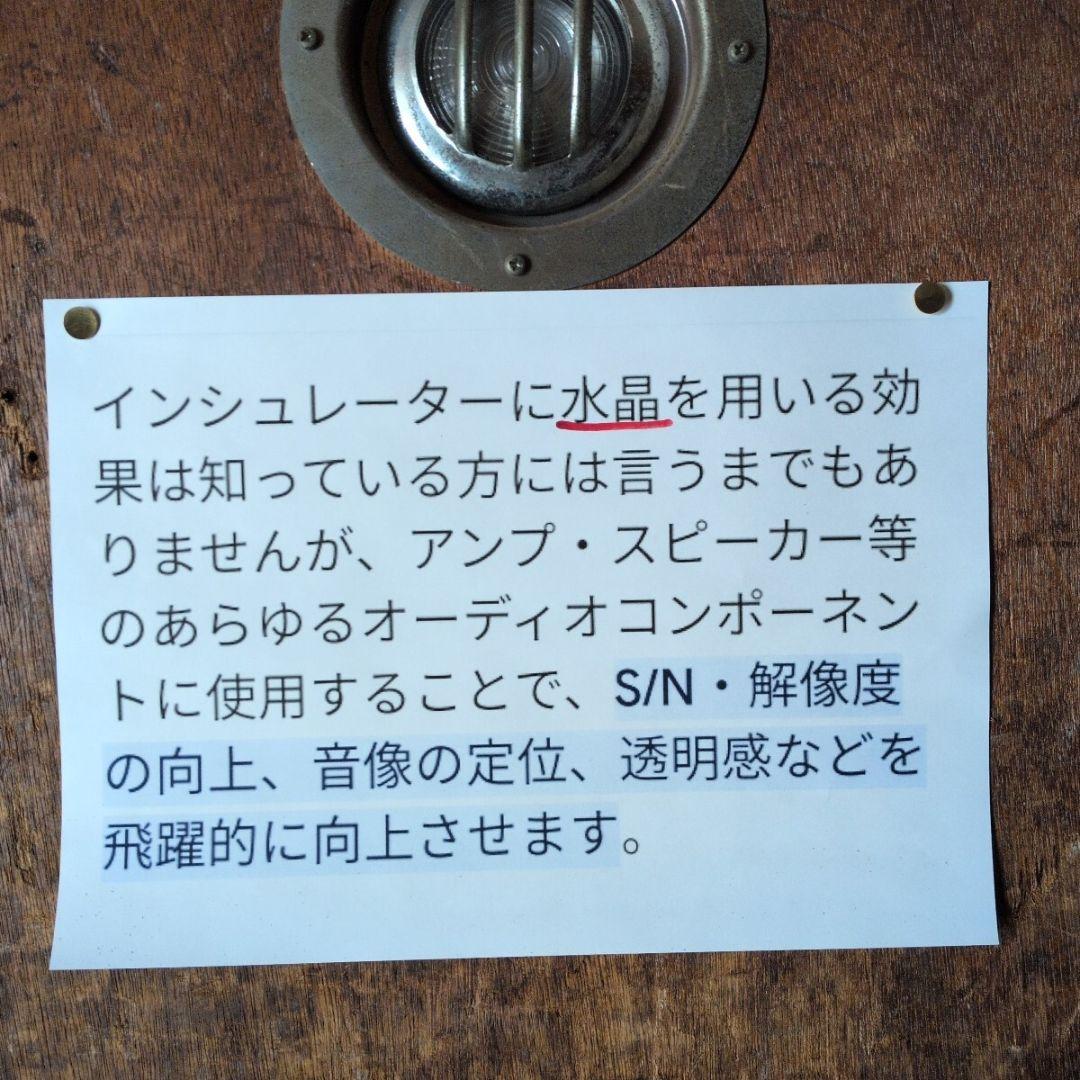 インシュレーターに水晶を用いる効
果は知っている方には言うまでもあ
りませんが、アンプ・スピーカー等
のあらゆるオーディオコンポーネン
トに使用することで、S/N・解像度
の向上、音像の定位、透明感などを
飛躍的に向上させます。